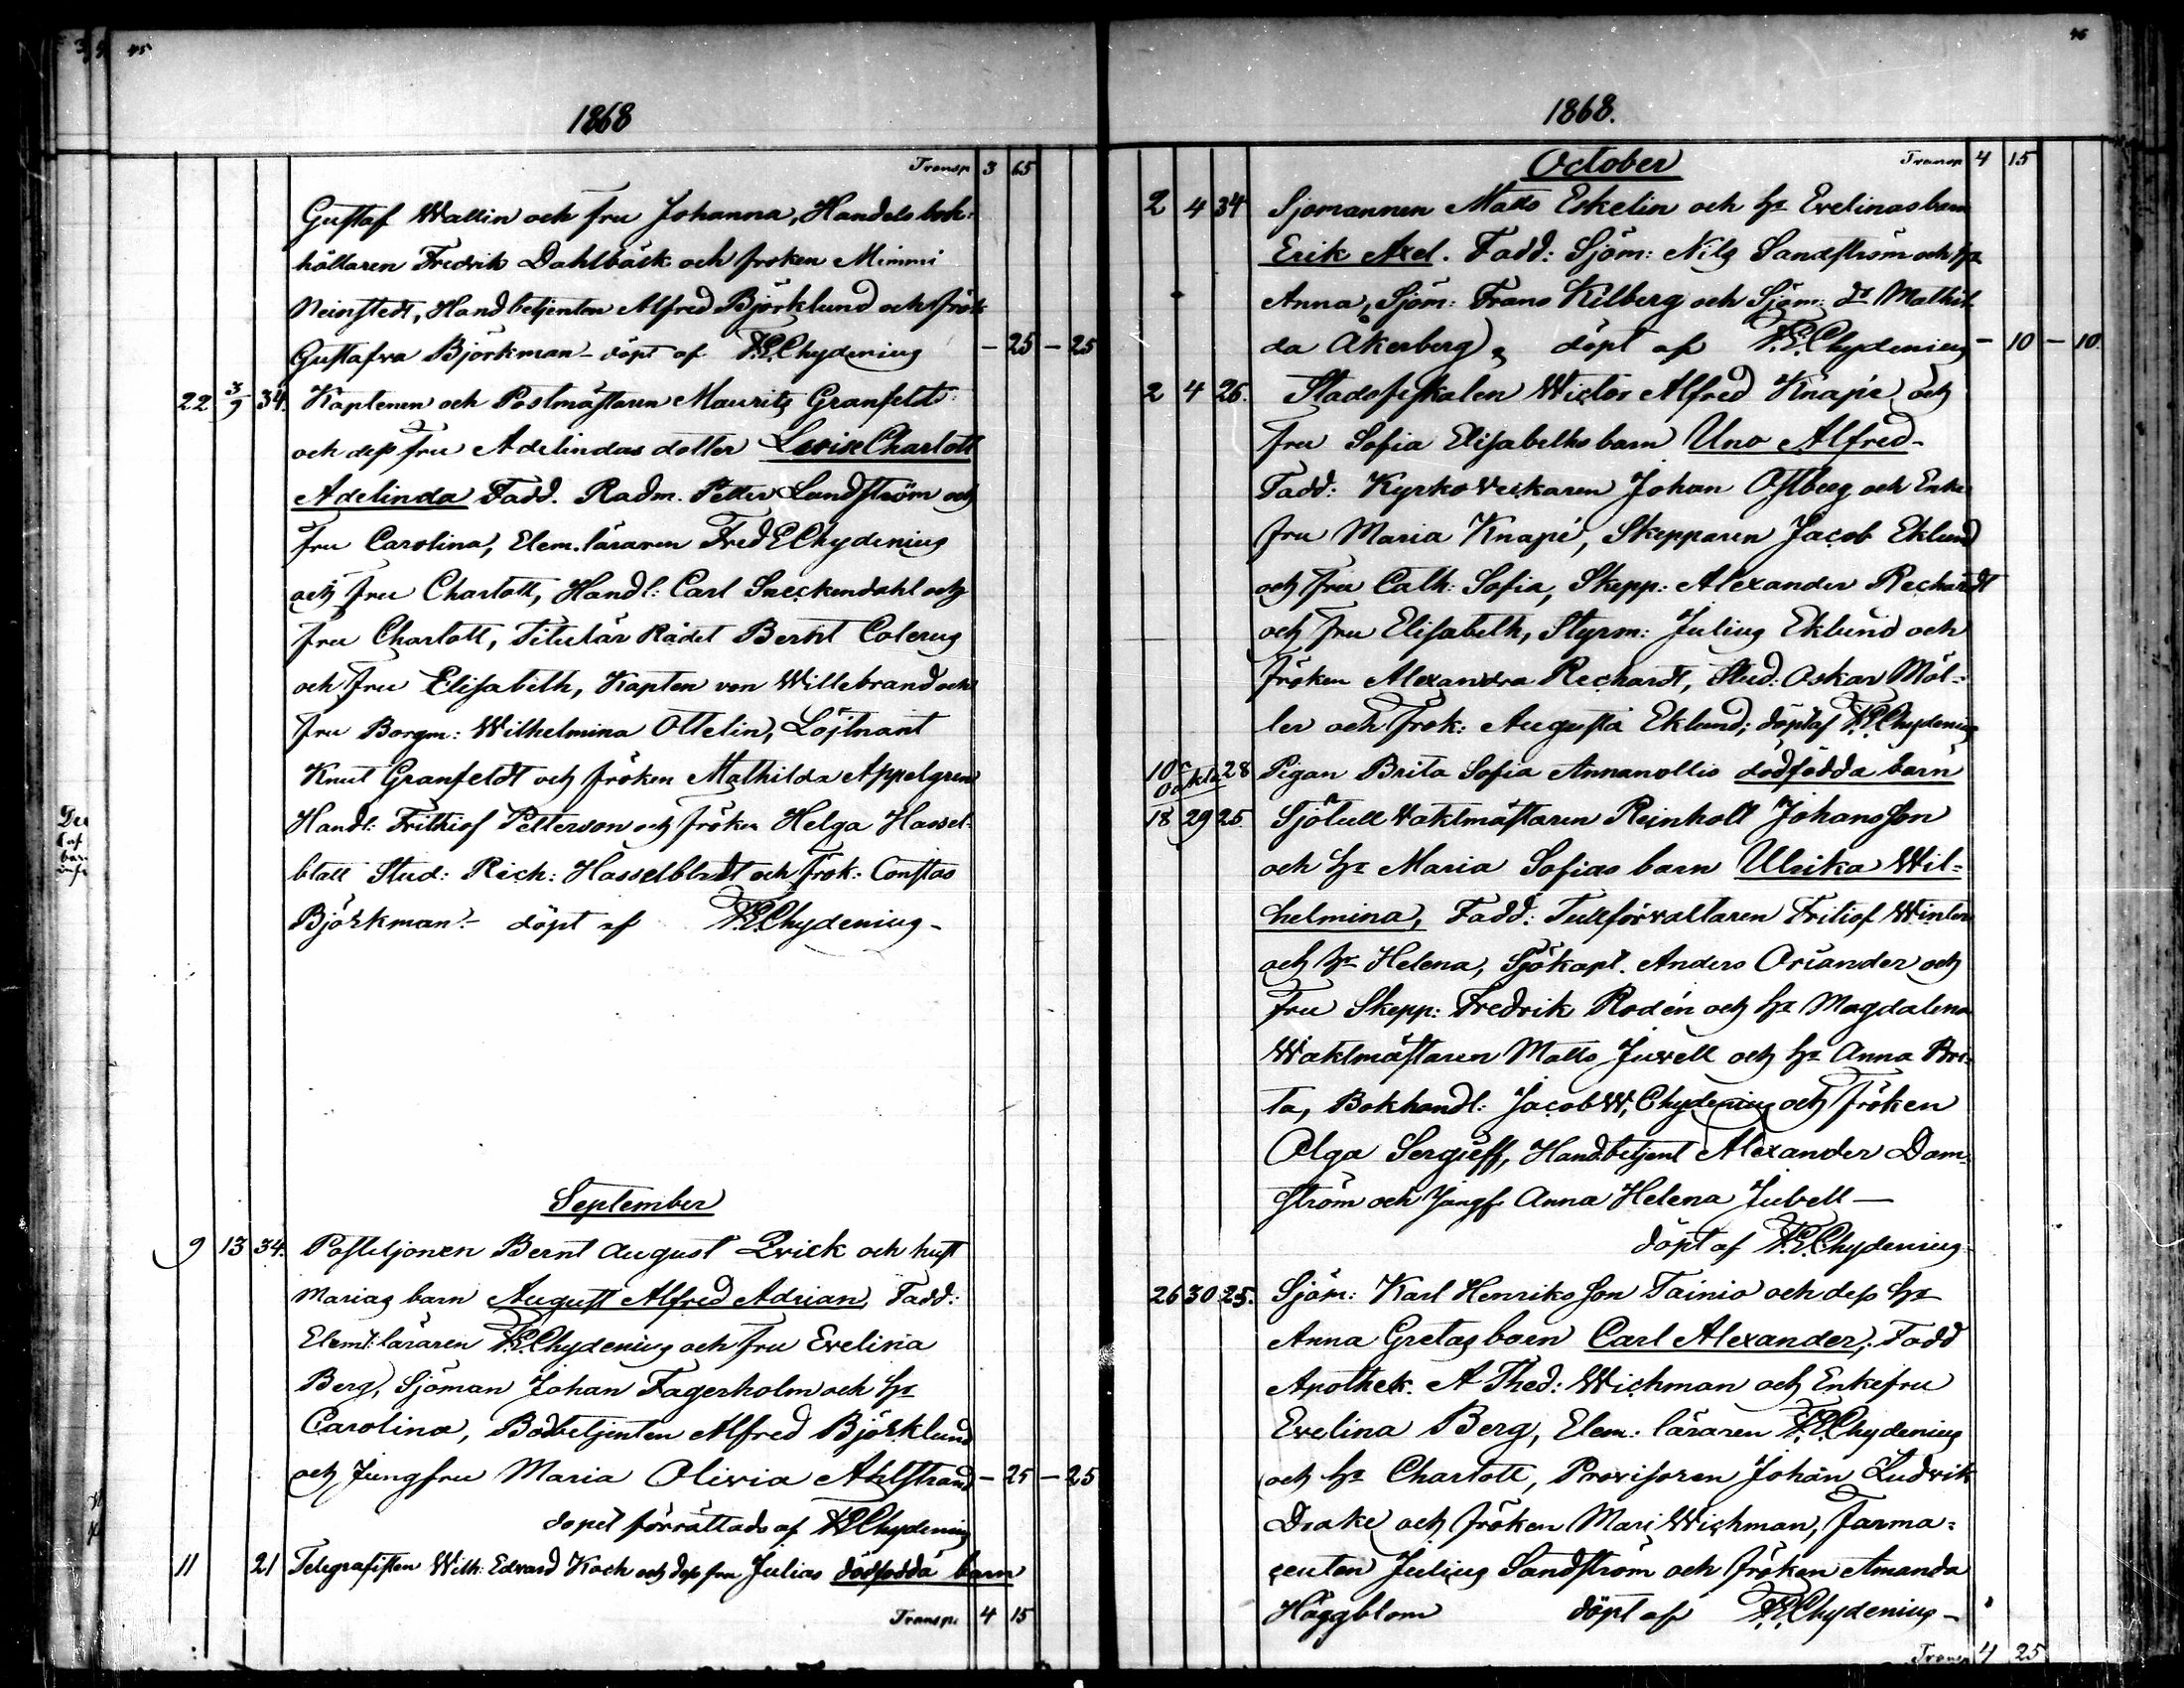 45
1868
Transp 3 65
Gustaf Wallin och fru Johanna, Handels bok-
hållaren Fredrik Dahlbäck och fröken Mimmi
Neinstedt, Handbetjenten Alfred Björklund och frök
Gustafva Björkman - döpt af F.E.Chydenius - 25 - 25
22 3/9 34. Kaptenen och Postmästaren Mauritz Granfeldt
och dess fru Adelindas dotter Lovise Charlott
Adelinda Fadd. Radm. Petter Lundström och
fru Carolina, Elem. läraren Fred E Chydenius
och fru Charlott, Handl: Carl Sneckendahl och
fru Charlott, Titulär Rådet Bernt Colerus
och fru Elisabeth, Kapten von Willebrand och
fru Borgm: Wilhelmina Ottelin, Löjtnant
Knut Granfeldt och fröken Mathilda Appelgren
Handl: Frithiof Petterson och fröken Helga Hassel-
blatt Stud: Rich: Hasselbladt och frök: Constas
Björkman - döpt af F.E.Chydenius -
September
9 13 34. Postiljonen Bernt August Qvick och hust
Marias barn August Alfred Adrian, Fadd:
Elemt: läraren F.E.Chydenius och fru Evelina
Berg, Sjöman Johan Fagerholm och h:
Carolina, Bodbetjenten Alfred Björklund
och Jungfru Maria Olivia Ahlstrand - 25 - 25
dopet förrättads af F.E.Chydenius
11 21 Telegrafisten Wilh: Edvard Koch och dess fru Julias dödfödda barn
Transp. 4 15
46
1868.
October Transp 4 15
2 4 34 Sjömannen Matts Eskelin och h: Evelinas barn
Erik Axel. Fadd: Sjöm: Nils Sandström och h:
Anna, Sjöm: Frans Kilberg och Sjöm: dr Mathil-
da Åkerberg, döpt af F.E.Chydenius - 10 - 10.
2 4 26. Stadsfiskalen Wictor Alfred Knapé och
fru Sofia Elisabeths barn Uno Alfred -
Fadd: Kyrkoveckaren Johan Östberg och Enke
fru Maria Knapé, Skepparen Jacob Eklund
och fru Cath: Sofia, Skepp: Alexander Rechardt
och fru Elisabeth, Styrm: Julius Eklund och
fröken Alexandra Rechardt, Stud: Oskar Möl-
ler och frök: Augusta Eklund; döpt af F.E.Chydenius
10 28 Pigan Brita Sofia dödfödda barn
18 29 25. Sjötull Vaktmästaren Reinholt Johansson
och h: Maria Sofias barn Ulrika Wil-
helmina, Fadd: Tullförvaltaren Fritiof Winter
och h: Helena, Sjökapt. Anders Oriander och
fru Skepp: Fredrik Rodén och h: Magdalena
Waktmästaren Matts Juvell och h: Anna Bri-
ta, Bokhandl: Jacob W. Chydenius och fröken
Olga Sergieff, Handbetjent Alexander Dam-
ström och Jungf: Anna Helena Juvell —
döpt af F.E.Chydenius
26 30 25. Sjöm: Karl Henriksson Tainio och dess h:
Anna Gretas barn Carl Alexander; Fadd
Apothek. A Thed: Wichman och Enkefru
Evelina Berg, Elem: läraren F.E.Chydenius
och h: Charlott, Provisoren Johan Ludvik
Drake och fröken Mari Wichman, Farma-
ceuten Julius Sandström och fröken Amanda
Häggblom döpt af F.E.Chydenius -
Transp 4 25